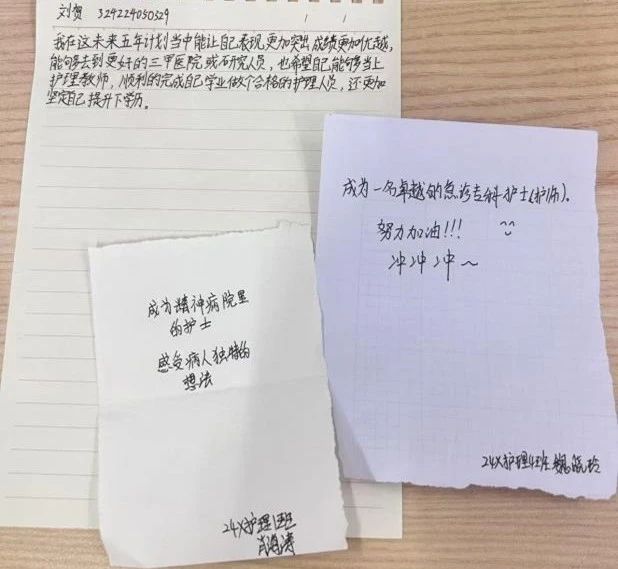 刘贺 324224050529
我在这未来五年计划当中能让自己表现更加突出成绩更加优越,
能够去到更好的三甲医院或研究人员,也希望自己能够当上
护理教师,顺利的完成自己学业做个合格的护理人员,还更加
坚定自己提升下学历。
成为一名卓越的急诊专科护士(护师)。
努力加油!!!
冲冲冲~
24X护理4班
成为精神病院里
的护士
感受病人独特的
想法
24X护理1班
肖海涛